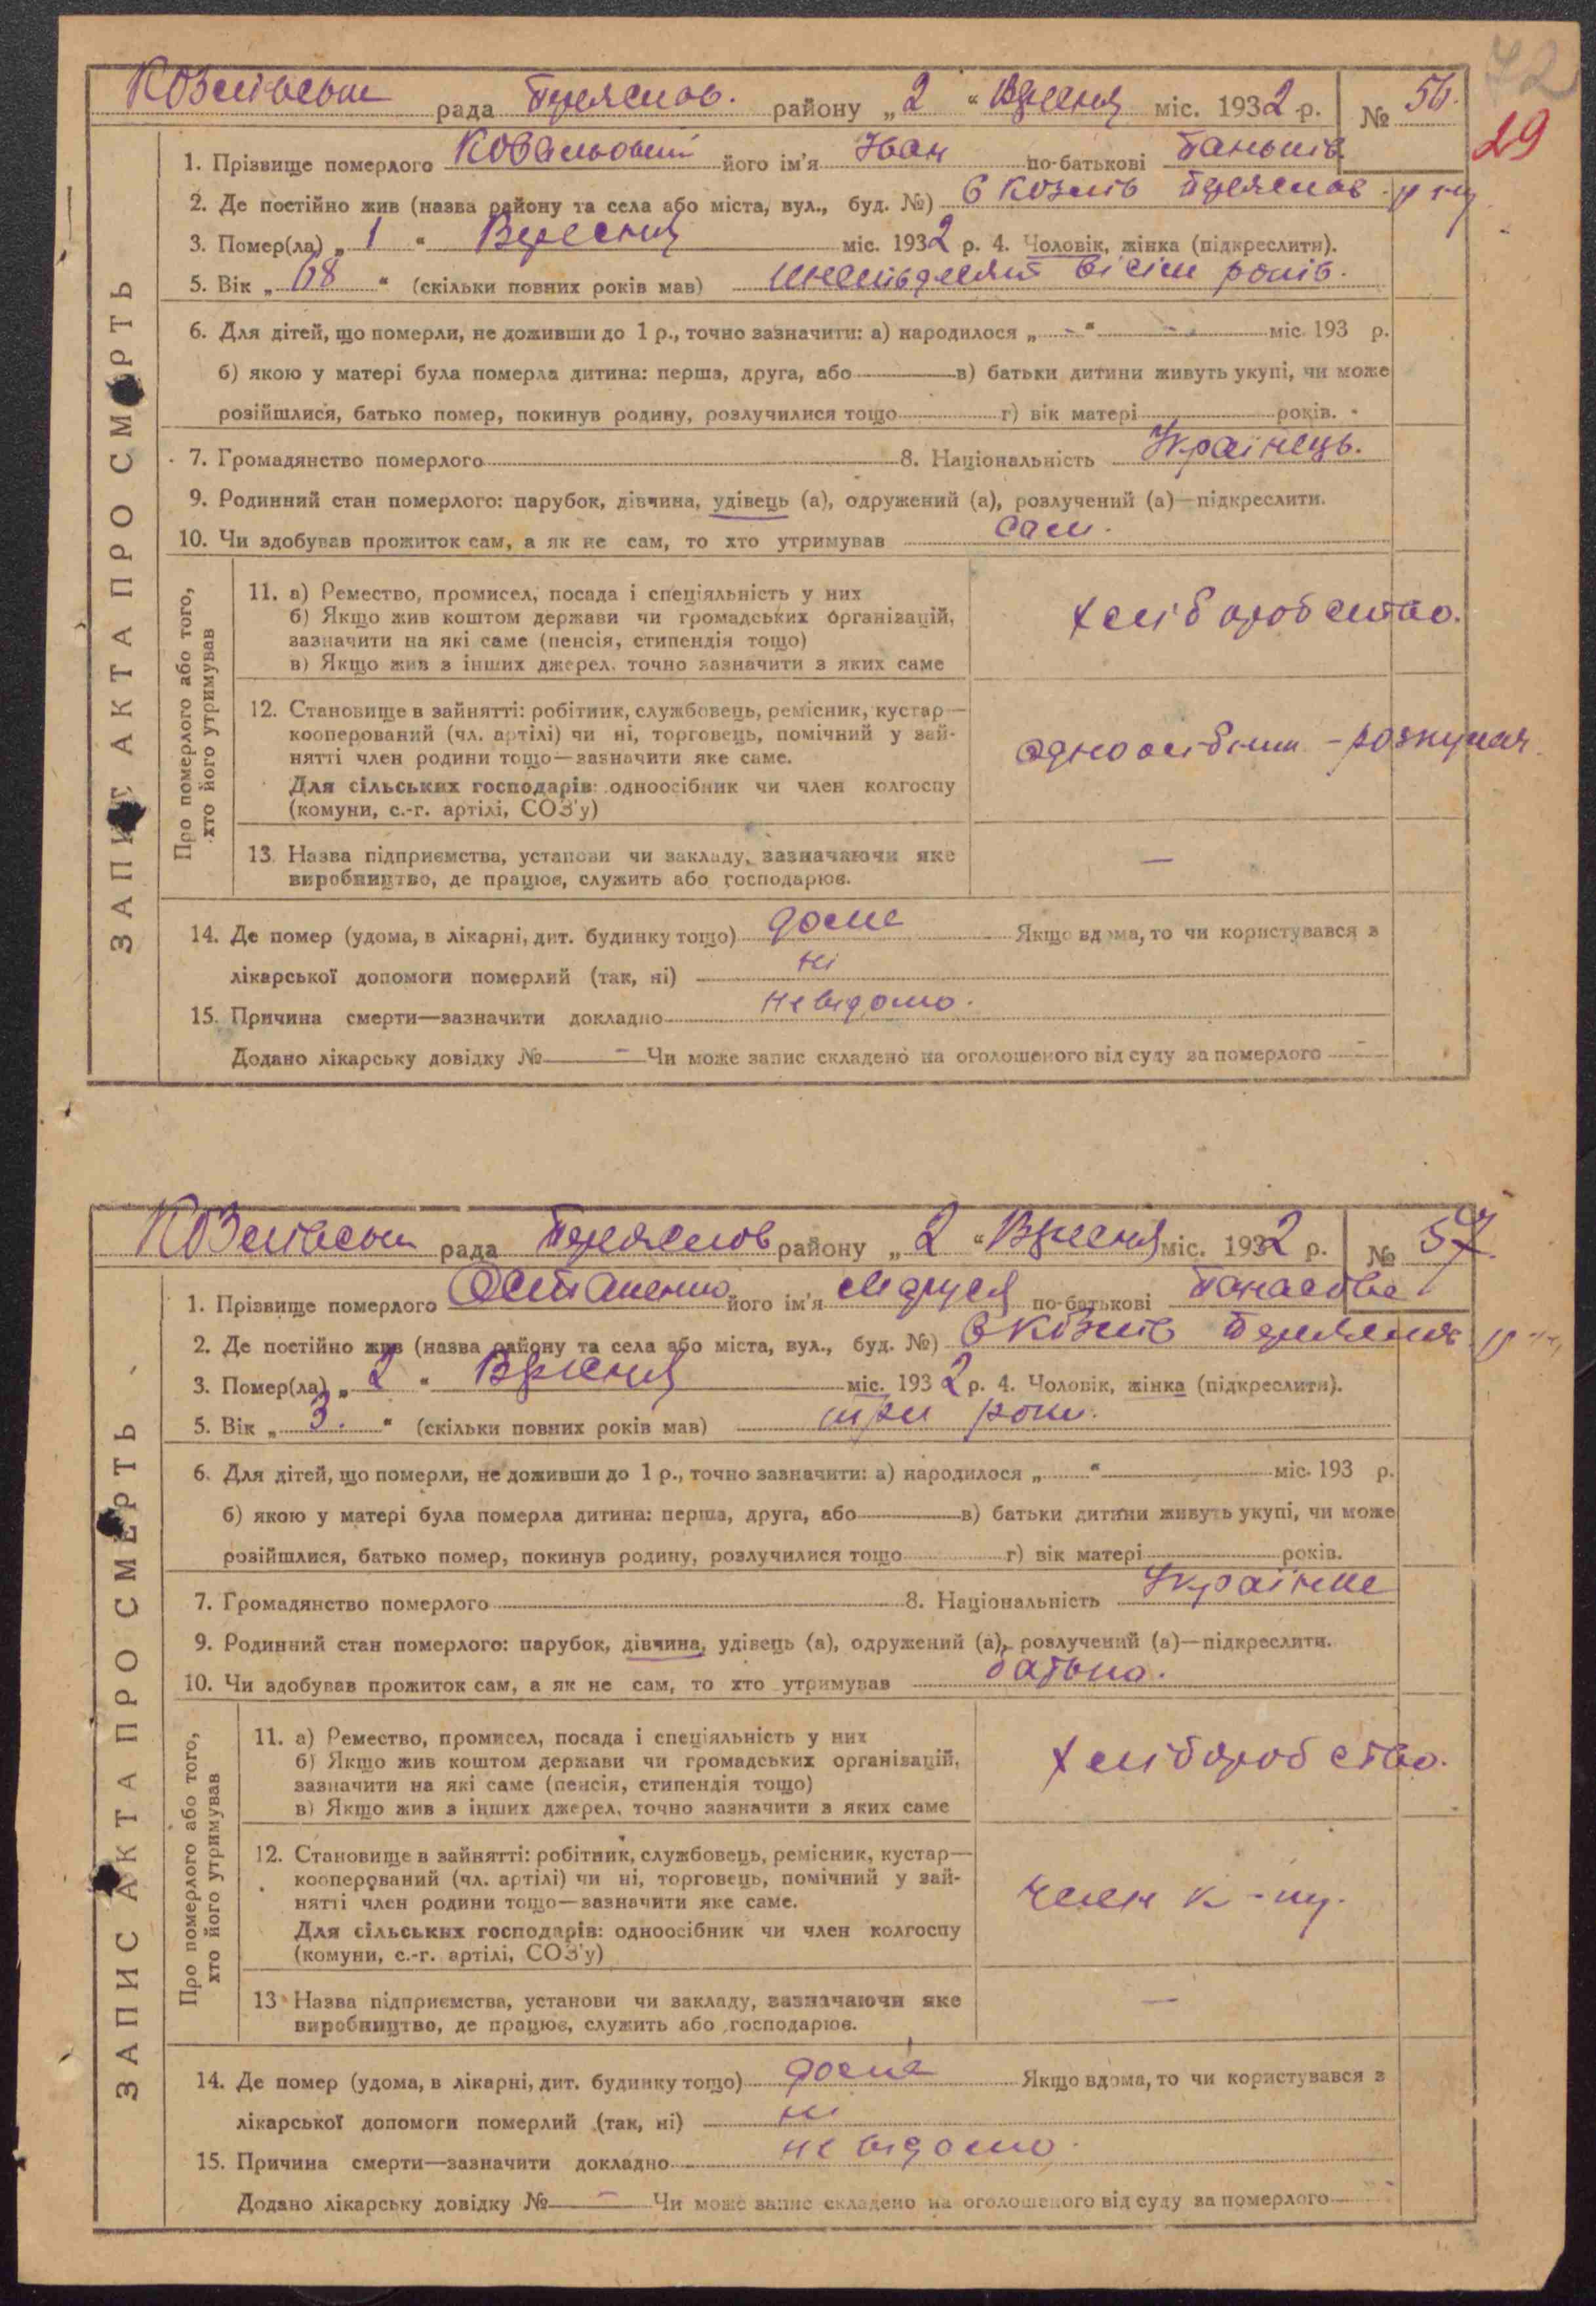 72
29
Козлівськ рада Переяслов. району „2“ Вресня міс. 1932 р. № 56.
ЗАПИС АКТА ПРО СМЕРТЬ
1. Прізвище померлого його ім'я Іван по-батькові
2. Де постійно жив (назва району та села або міста, вул., буд. №) с Козлів Переяслов р-ну
3. Помер(ла) „1“ Вересня міс. 1932 р. 4. Чоловік, жінка (підкреслити).
5. Вік „68“ (скільки повних років мав) шельдесят вісім років.
6. Для дітей, що померли, не доживши до 1 р., точно зазначити: а) народилося „-“ - міс. 193 р.
б) якою у матері була померла дитина: перша, друга, або в) батьки дитини живуть укупі, чи може
розійшлися, батько помер, покинув родину, розлучилися тощо г) вік матері років.
7. Громадянство померлого 8. Національність Українець.
9. Родинний стан померлого: парубок, дівчина, удівець (а), одружений (а), розлучений (а)—підкреслити.
10. Чи здобував прожиток сам, а як не сам, то хто утримував сам.
Про померлого або того,
хто його утримував
11. а) Ремество, промисел, посада і спеціяльність у них
б) Якщо жив коштом держави чи громадських організацій,
зазначити на які саме (пенсія, стипендія тощо)
в) Якщо жив з інших джерел, точно зазначити з яких саме
хліборобство.
12. Становище в зайнятті: робітник, службовець, ремісник, кустар—
кооперований (чл. артілі) чи ні, торговець, помічний у зай-
нятті член родини тощо—зазначити яке саме.
Для сільських господарів: одноосібник чи член колгоспу
(комуни, с.-г. артілі, СОЗ'у)
одноосібник -
13. Назва підприємства, установи чи закладу, зазначаючи яке
виробництво, де працює, служить або господарює.
—
14. Де помер (удома, в лікарні, дит. будинку тощо) дома Якщо вдома, то чи користувався з
лікарської допомоги померлий (так, ні) ні
15. Причина смерти—зазначити докладно невідомо.
Додано лікарську довідку № - Чи може запис складено на оголошеного від суду за померлого -
Козлівськ рада Переяслов району „2“ Вресня міс. 1932 р. № 57.
ЗАПИС АКТА ПРО СМЕРТЬ
1. Прізвище померлого Остапенко його ім'я Маруся по-батькові Панасовна
2. Де постійно жив (назва району та села або міста, вул., буд. №) с Козлів Переяслов р-н,
3. Помер(ла) „2“ Вресня міс. 1932 р. 4. Чоловік, жінка (підкреслити).
5. Вік „3.“ (скільки повних років мав) три роки.
6. Для дітей, що померли, не доживши до 1 р., точно зазначити: а) народилося „ “ міс. 193 р.
б) якою у матері була померла дитина: перша, друга, або в) батьки дитини живуть укупі, чи може
розійшлися, батько помер, покинув родину, розлучилися тощо г) вік матері років.
7. Громадянство померлого 8. Національність Українка
9. Родинний стан померлого: парубок, дівчина, удівець (а), одружений (а), розлучений (а)—підкреслити.
10. Чи здобував прожиток сам, а як не сам, то хто утримував батько.
Про померлого або того,
хто його утримував
11. а) Ремество, промисел, посада і спеціяльність у них
б) Якщо жив коштом держави чи громадських організацій,
зазначити на які саме (пенсія, стипендія тощо)
в) Якщо жив з інших джерел, точно зазначити з яких саме
хліборобство.
12. Становище в зайнятті: робітник, службовець, ремісник, кустар—
кооперований (чл. артілі) чи ні, торговець, помічний у зай-
нятті член родини тощо—зазначити яке саме.
Для сільських господарів: одноосібник чи член колгоспу
(комуни, с.-г. артілі, СОЗ'у)
член к-пу.
13 Назва підприємства, установи чи закладу, зазначаючи яке
виробництво, де працює, служить або господарює.
—
14. Де помер (удома, в лікарні, дит. будинку тощо) дома Якщо вдома, то чи користувався з
лікарської допомоги померлий (так, ні) ні
15. Причина смерти—зазначити докладно невідомо.
Додано лікарську довідку № - Чи може запис складено на оголошеного від суду за померлого